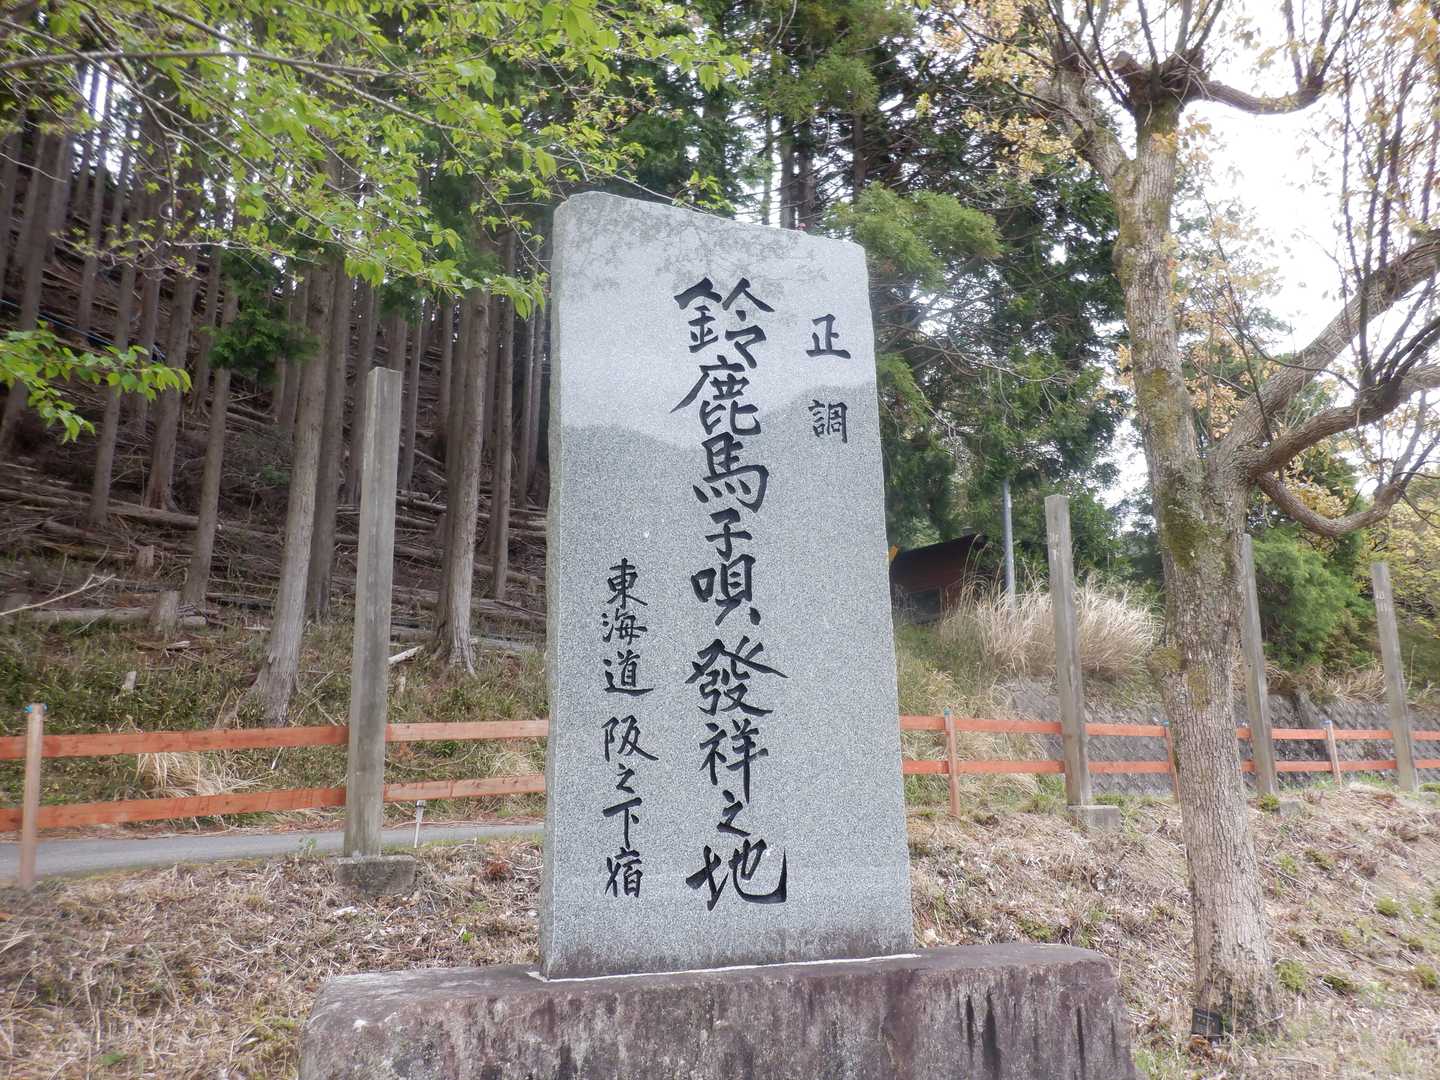 正調
鈴鹿馬子唄發祥之地
東海道 阪之下宿